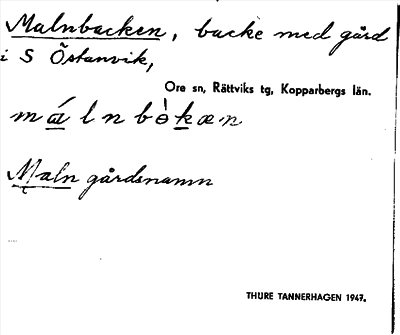 Malnbacken, backe med gård
i S Östanvik,
Ore sn, Rättviks tg, Kopparbergs län.
málnbòkæn
Maln gårdsnamn
THURE TANNERHAGEN 1947.